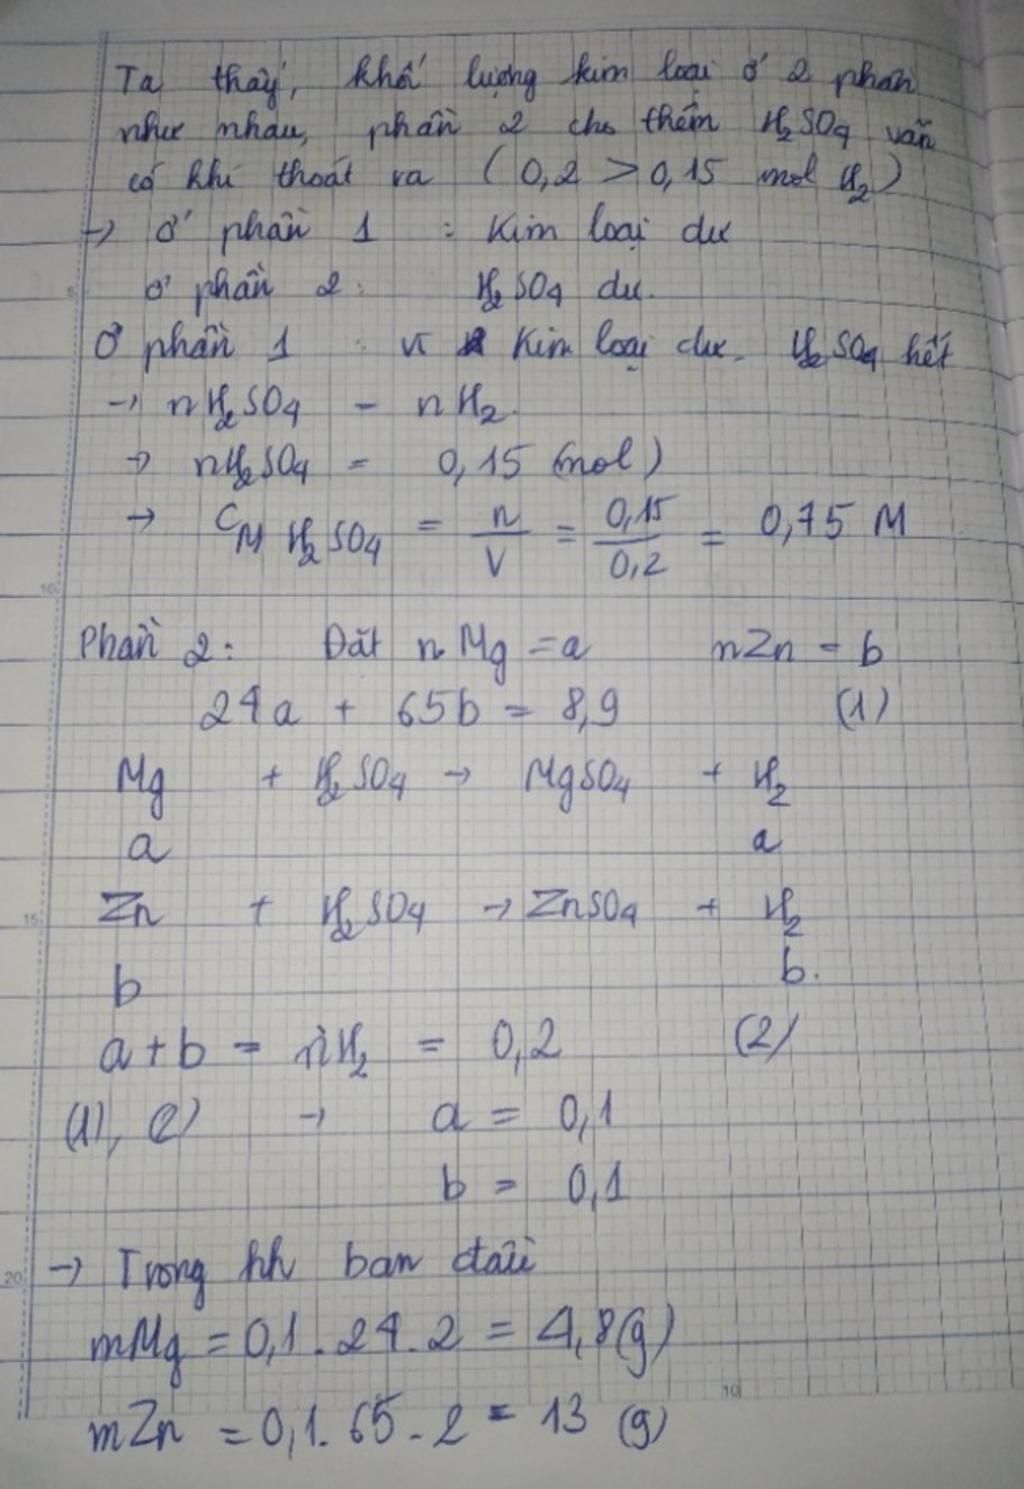 Ta thấy, khối lượng kim loại ở 2 phần
như nhau, phần 2 cho thêm H2SO4 vẫn
có khí thoát ra (0,2 > 0,15 mol H2)
→ Ở phần 1 : Kim loại dư
Ở phần 2: H2SO4 dư.
Ở phần 1 : vì Kim loại dư. H2SO4 hết
→ nH2SO4 = nH2.
→ nH2SO4 = 0,15 (mol)
→ CM H2SO4 = n/V = 0,15/0,2 = 0,75 M
Phần 2: Đặt nMg = a nZn = b
24a + 65b = 8,9 (1)
Mg + H2SO4 → MgSO4 + H2
a a
Zn + H2SO4 → ZnSO4 + H2
b b.
a+b = nH2 = 0,2 (2)
(1), (2) → a = 0,1
b = 0,1
→ Trong hh ban đầu
mMg = 0,1 . 24 . 2 = 4,8 (g)
mZn = 0,1 . 65 . 2 = 13 (g)